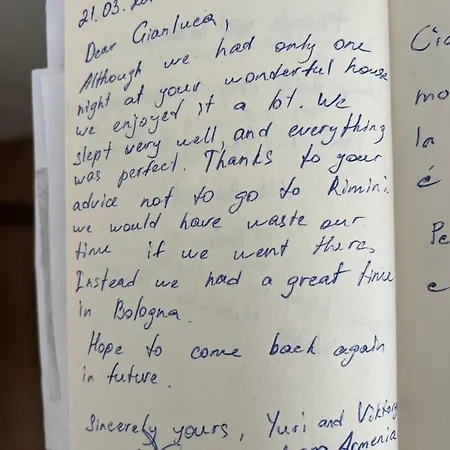 21.03.
Dear Gianluca,
Although we had only one
night at your wonderful house
we enjoyed it a lot. We
slept very well, and everything
was perfect. Thanks to your
advice not to go to Rimini.
we would have waste our
time if we went there,
Instead we had a great time
in Bologna.
Hope to come back again
in future.
Sincerely yours, Yuri and
Armenia